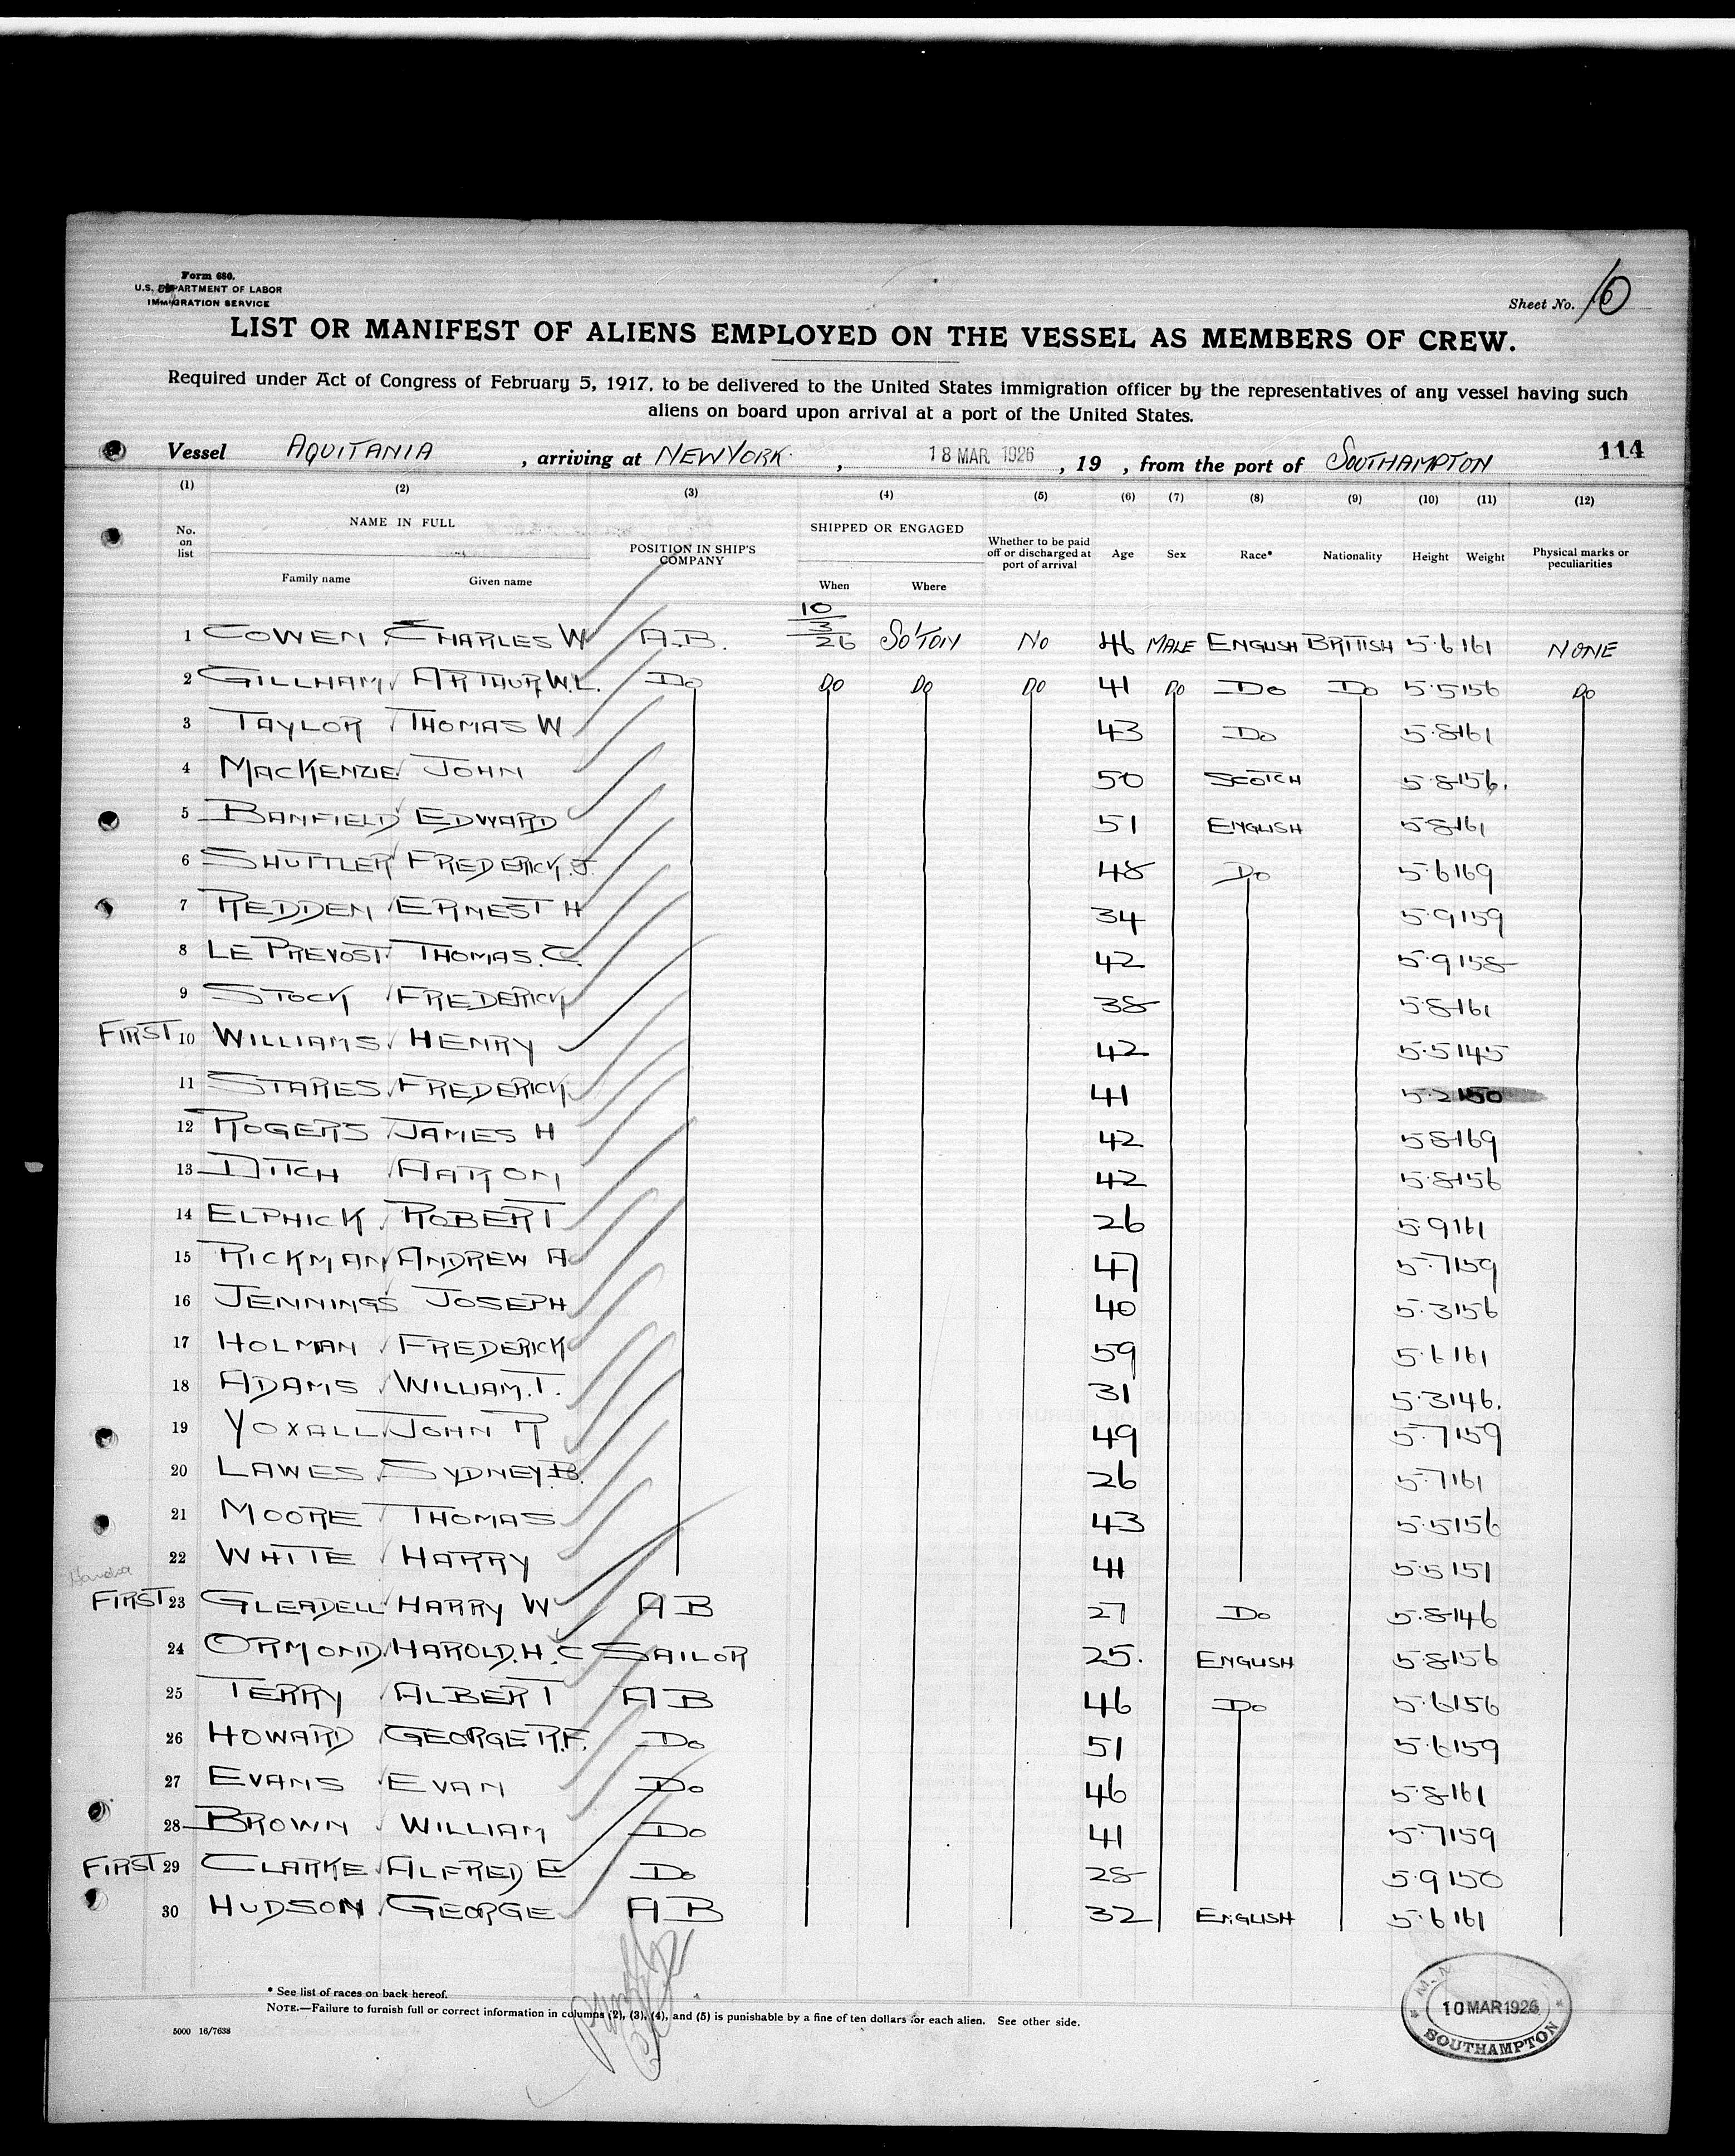 Form 680.
U.S. DEPARTMENT OF LABOR
IMMIGRATION SERVICE
Sheet No. 10
LIST OR MANIFEST OF ALIENS EMPLOYED ON THE VESSEL AS MEMBERS OF CREW.
Required under Act of Congress of February 5, 1917, to be delivered to the United States immigration officer by the representatives of any vessel having such
aliens on board upon arrival at a port of the United States.
114
Vessel AQUITANIA , arriving at NEW YORK , 18 MAR. 1926 , 19 , from the port of SOUTHAMPTON
(1) (2) (3) (4) (5) (6) (7) (8) (9) (10) (11) (12)
No. on list NAME IN FULL Family name Given name POSITION IN SHIP'S COMPANY SHIPPED OR ENGAGED When Where Whether to be paid off or discharged at port of arrival Age Sex Race* Nationality Height Weight Physical marks or peculiarities
1 COWEN CHARLES W A.B. 10/3/26 SO'TON NO 46 MALE ENGLISH BRITISH 5.6 161 NONE
2 GILLHAM ARTHUR W.L. DO DO DO DO 41 DO DO DO 5.5 156 DO
3 TAYLOR THOMAS W 43 DO 5.8 161
4 MACKENZIE JOHN 50 SCOTCH 5.8 156.
5 BANFIELD EDWARD 51 ENGLISH 5.8 161
6 SHUTTLER FREDERICK.J. 48 DO 5.6 169
7 REDDEN ERNEST H 34 5.9 159
8 LE PREVOST THOMAS.C. 42 5.9 158
9 STOCK FREDERICK 38 5.8 161
FIRST 10 WILLIAMS HENRY 42 5.5 145
11 STARES FREDERICK 41 5.2 150
12 ROGERS JAMES H 42 5.8 169
13 DITCH AARON 42 5.8 156
14 ELPHICK ROBERT 26 5.9 161
15 RICKMAN ANDREW A 47 5.7 159
16 JENNINGS JOSEPH 40 5.3 156
17 HOLMAN FREDERICK 59 5.6 161
18 ADAMS WILLIAM.T. 31 5.3 146.
19 YOXALL JOHN R 49 5.7 159
20 LAWES SYDNEY.B. 26 5.7 161
21 MOORE THOMAS 43 5.5 156
22 WHITE HARRY 41 5.5 151
FIRST 23 GLEADELL HARRY W A B 27 DO 5.8 146
24 ORMOND HAROLD.H.C SAILOR 25. ENGLISH 5.8 156
25 TERRY ALBERT A B 46 DO 5.6 156
26 HOWARD GEORGE R.F. DO 51 5.6 159
27 EVANS EVAN DO 46 5.8 161
28 BROWN WILLIAM DO 41 5.7 159
FIRST 29 CLARKE ALFRED E DO 28 5.9 150
30 HUDSON GEORGE A B 32 ENGLISH 5.6 161
* See list of races on back hereof.
NOTE.—Failure to furnish full or correct information in columns (2), (3), (4), and (5) is punishable by a fine of ten dollars for each alien. See other side.
5000 16/7638
10 MAR 1926
SOUTHAMPTON